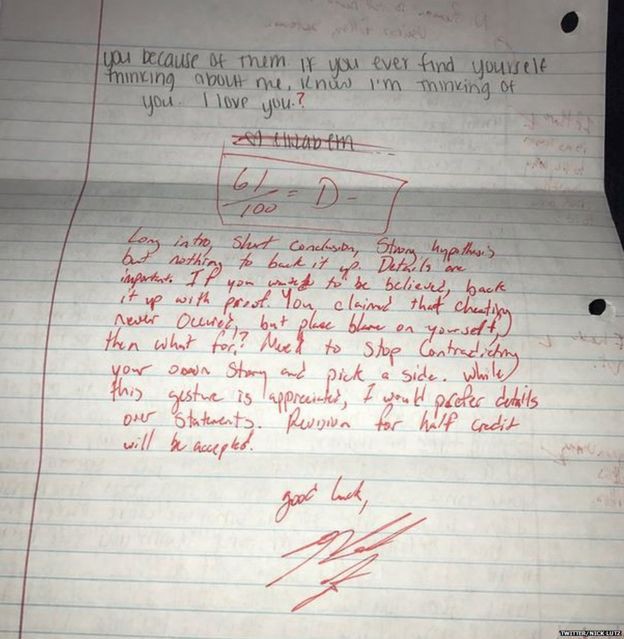 you because of them. If you ever find yourself
thinking about me, know I'm thinking of
you. I love you.?
61/100 = D-
Long intro, short conclusion, strong hypothesis
but nothing to back it up. Details are
important. If you want to be believed, back
it up with proof. You claimed that cheating
never occured, but place blame on yourself,
then what for? Need to stop contradicting
your own story and pick a side. While
this gesture is appreciated, I would prefer details
over statements. Revision for half credit
will be accepted.
good luck,
TWITTER/NICK LUTZ